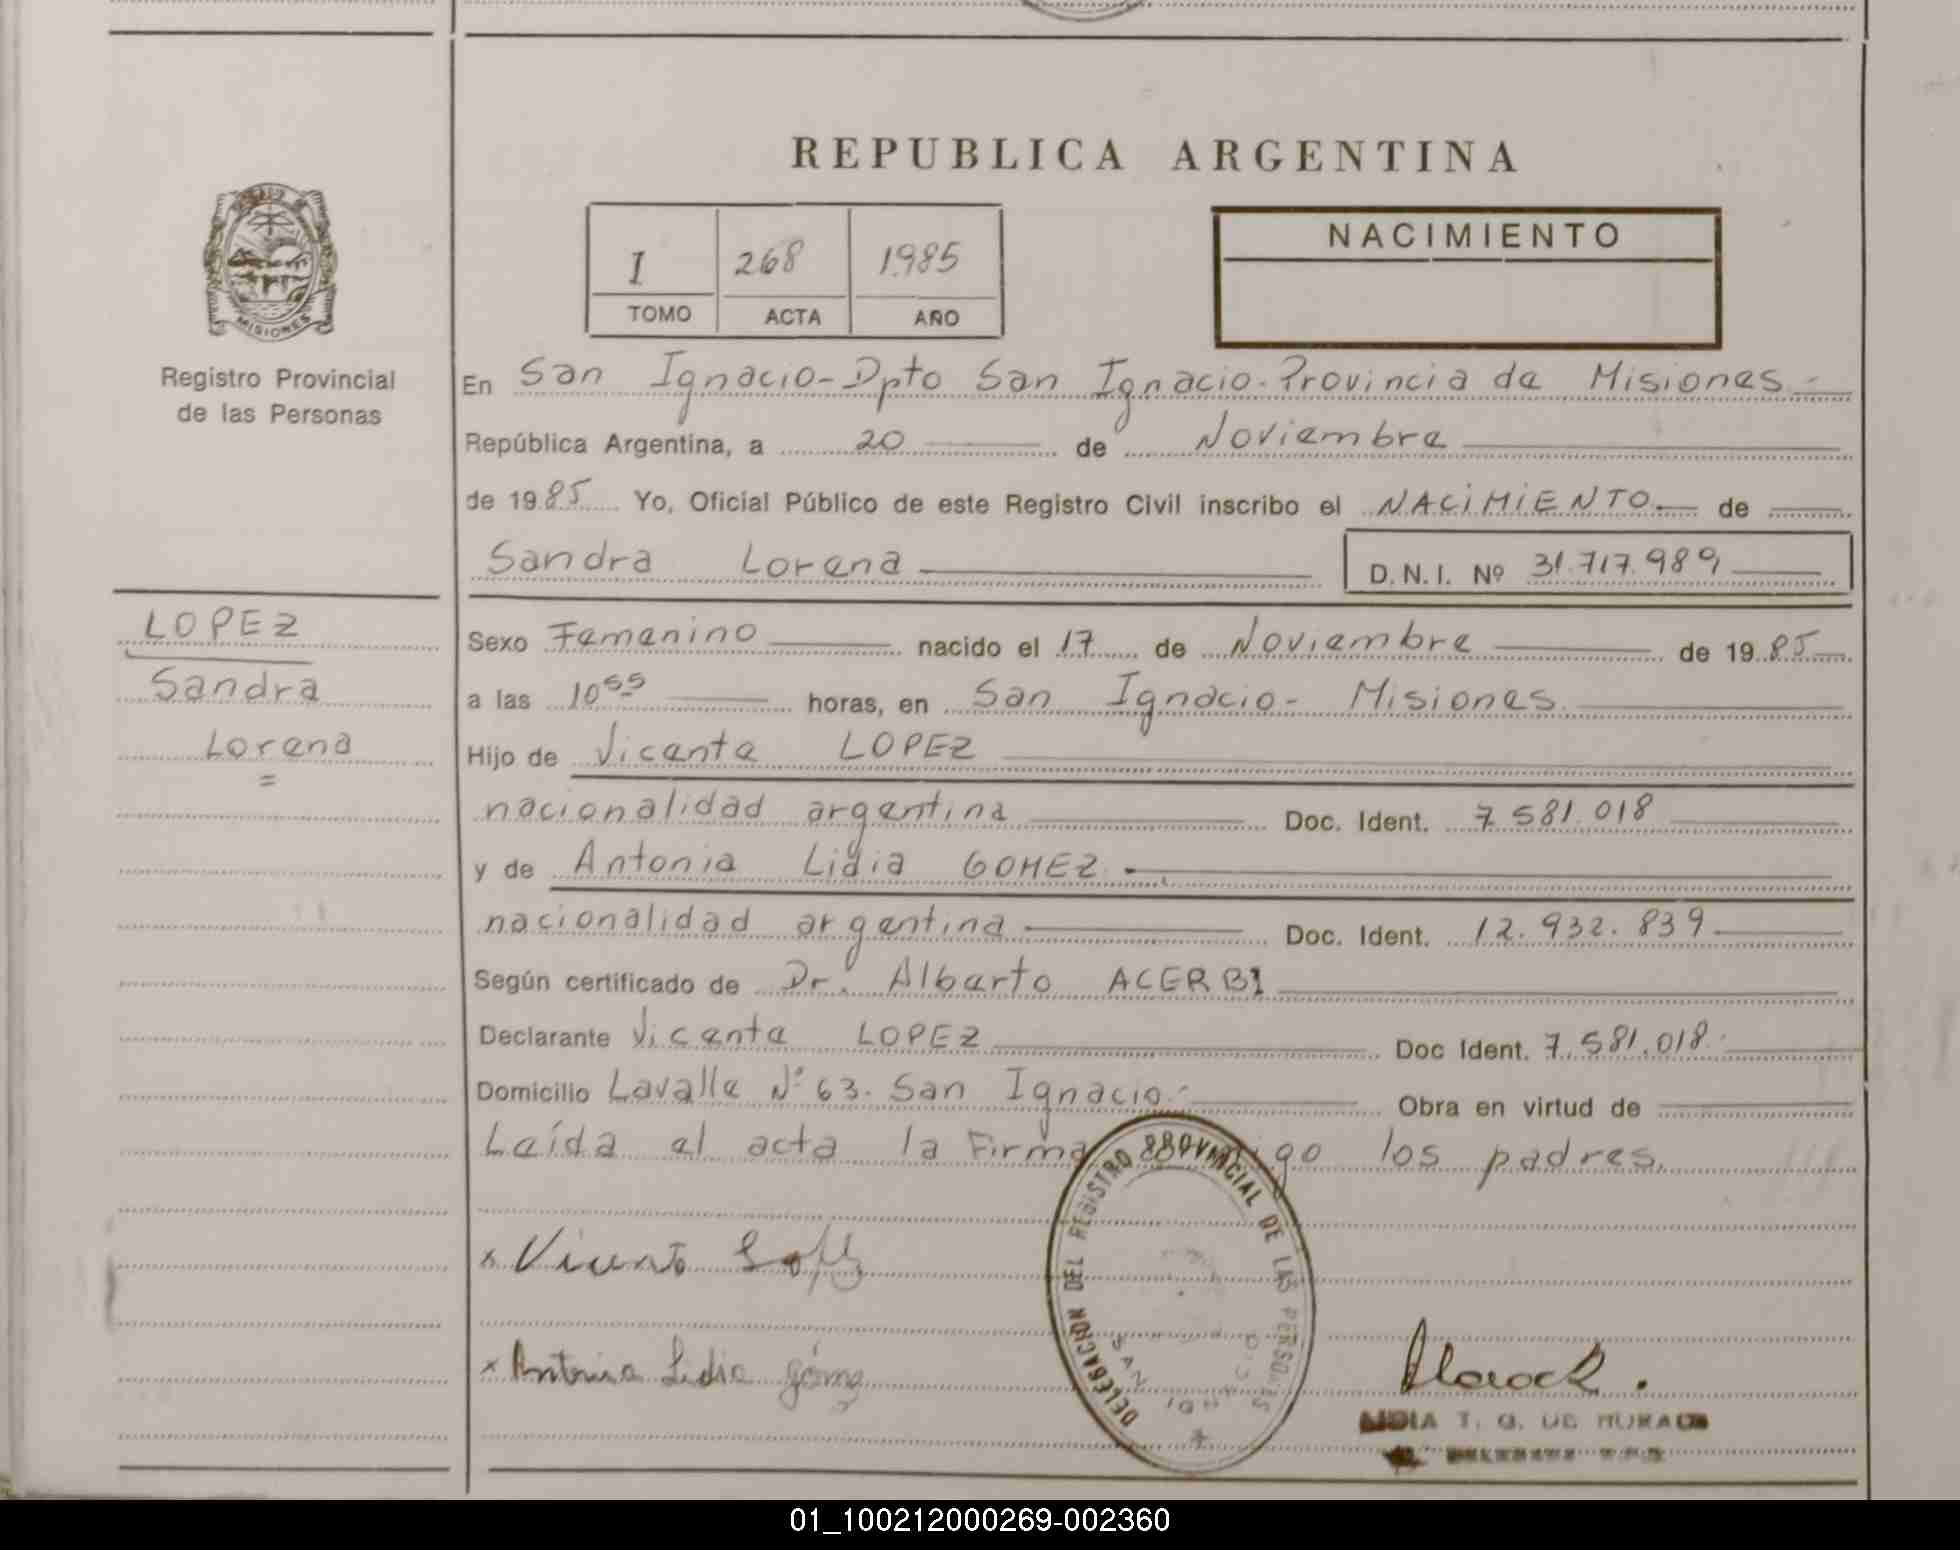 REPUBLICA ARGENTINA
NACIMIENTO
I 268 1985
TOMO ACTA AÑO
MISIONES
Registro Provincial
de las Personas
En San Ignacio-Dpto San Ignacio-Provincia de Misiones-
República Argentina, a 20 de Noviembre
de 1985 Yo, Oficial Público de este Registro Civil inscribo el NACIMIENTO de
Sandra Lorena D.N.I. Nº 31.717.989
LOPEZ
Sandra
Lorena
=
Sexo Femenino nacido el 17 de Noviembre de 1985
a las 10 55 horas, en San Ignacio- Misiones
Hijo de Vicente LOPEZ
nacionalidad argentina Doc. Ident. 7.581.018
y de Antonia Lidia GOMEZ
nacionalidad argentina Doc. Ident. 12.932.839
Según certificado de Dr. Alberto ACERBI
Declarante Vicente LOPEZ Doc Ident. 7.581.018
Domicilio Lavalle Nº 63. San Ignacio- Obra en virtud de
Leída el acta la Firma los padres.
DELEGACION DEL REGISTRO PROVINCIAL DE LAS PERSONAS
SAN
x Vicente
x Antonia Lidia Gómez
LIDIA T. G. DE
01_100212000269-002360